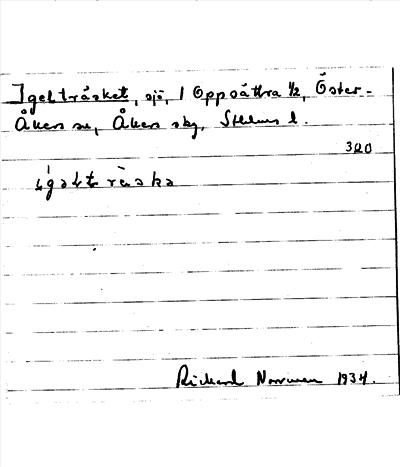 Igelträsket, sjö, 1 Oppsättra ½, Öster-
Åkers sn, Åkers skg, Sthlms l.
320
Rickard Norrman 1934.